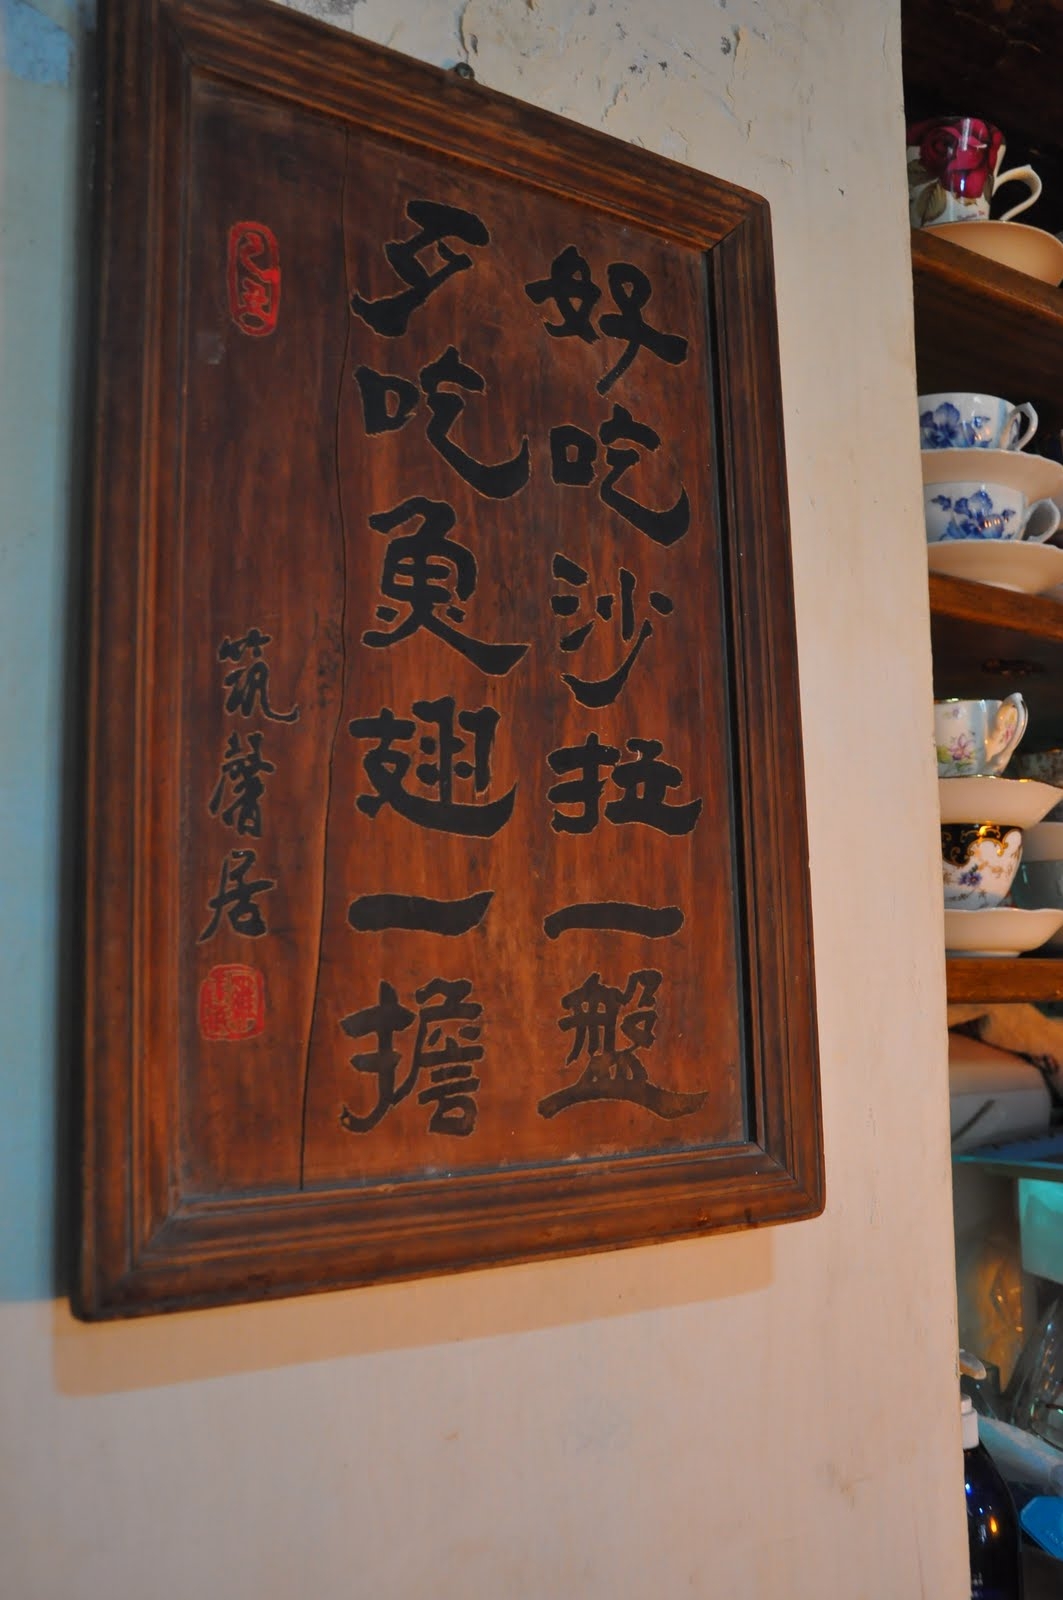 好吃沙拉一盤
歹吃魚翅一擔
己丑
筑馨居